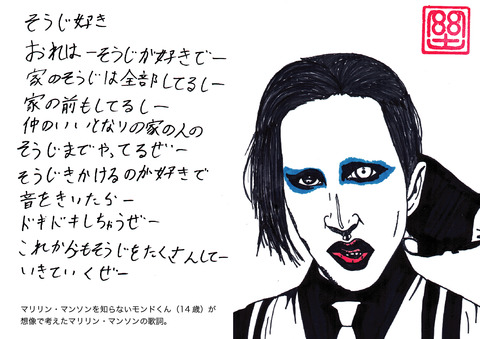 そうじ好き
おれはーそうじが好きでー
家のそうじは全部してるしー
家の前もしてるしー
仲のいいとなりの家の人の
そうじまでやってるぜー
そうじきかけるのが好きで
音をきいたらー
ドキドキしちゃうぜー
これからもそうじをたくさんしてー
いきていくぜー
マリリン・マンソンを知らないモンドくん（14 歳）が
想像で考えたマリリン・マンソンの歌詞。